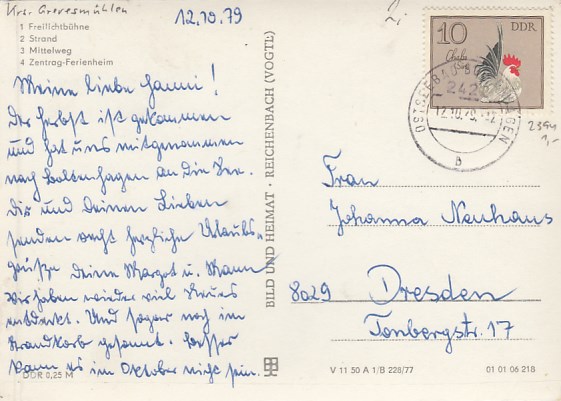 Krs. Grevesmühlen
12.10.79
1 Freilichtbühne
2 Strand
3 Mittelweg
4 Zentrag-Ferienheim
Meine liebe Hanni!
Der Herbst ist gekommen
und hat uns mitgenommen
nach Boltenhagen an die See.
Dir und Deinen Lieben
senden recht herzliche Urlaubs-
grüße Deine Margot u. Mann
Wir haben wieder viel Neues
entdeckt. Und sogar noch im
Strandkorb gesonnt. Besser
kann es im Oktober nicht sein.
DDR 0,25 M
BILD UND HEIMAT · REICHENBACH (VOGTL)
10 DDR
OSTSEEBAD BOLTENHAGEN
242
12.10.79
a
2394
1,-
Frau
Johanna Neuhaus
8029 Dresden
Tonbergstr. 17
V 11 50 A 1/B 228/77
01 01 06 218